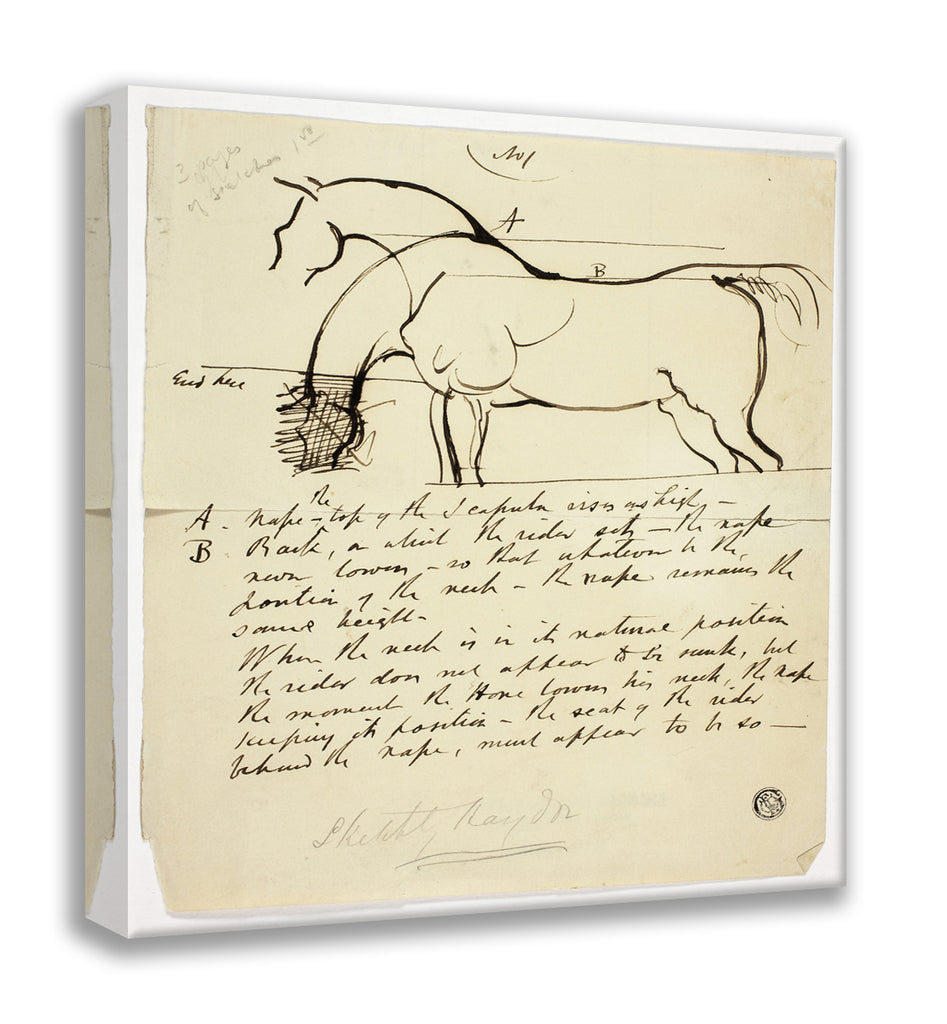 3 pages
of sketches
No 1
A
B
End here
the
A - Nape - top of the Scapula rises as high -
B Back, on which the rider sits - the nape
never lowers - so that whatever be the
position of the neck - the nape remains the
same height -
When the neck is in its natural position
the rider does not appear to be sunk, but
the moment the Horse lowers his neck, the nape
keeping its position - the seat of the rider
behind the nape, must appear to be so -
Sketch by Haydon